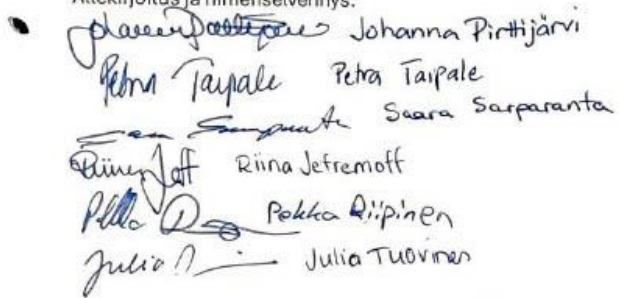 Allekirjoitus ja nimenselvennys:
Johanna Pirttijärvi
Petra Taipale Petra Taipale
Saara Sarparanta
Riina Jefremoff
Pekka Riipinen
Julia Tuovinen